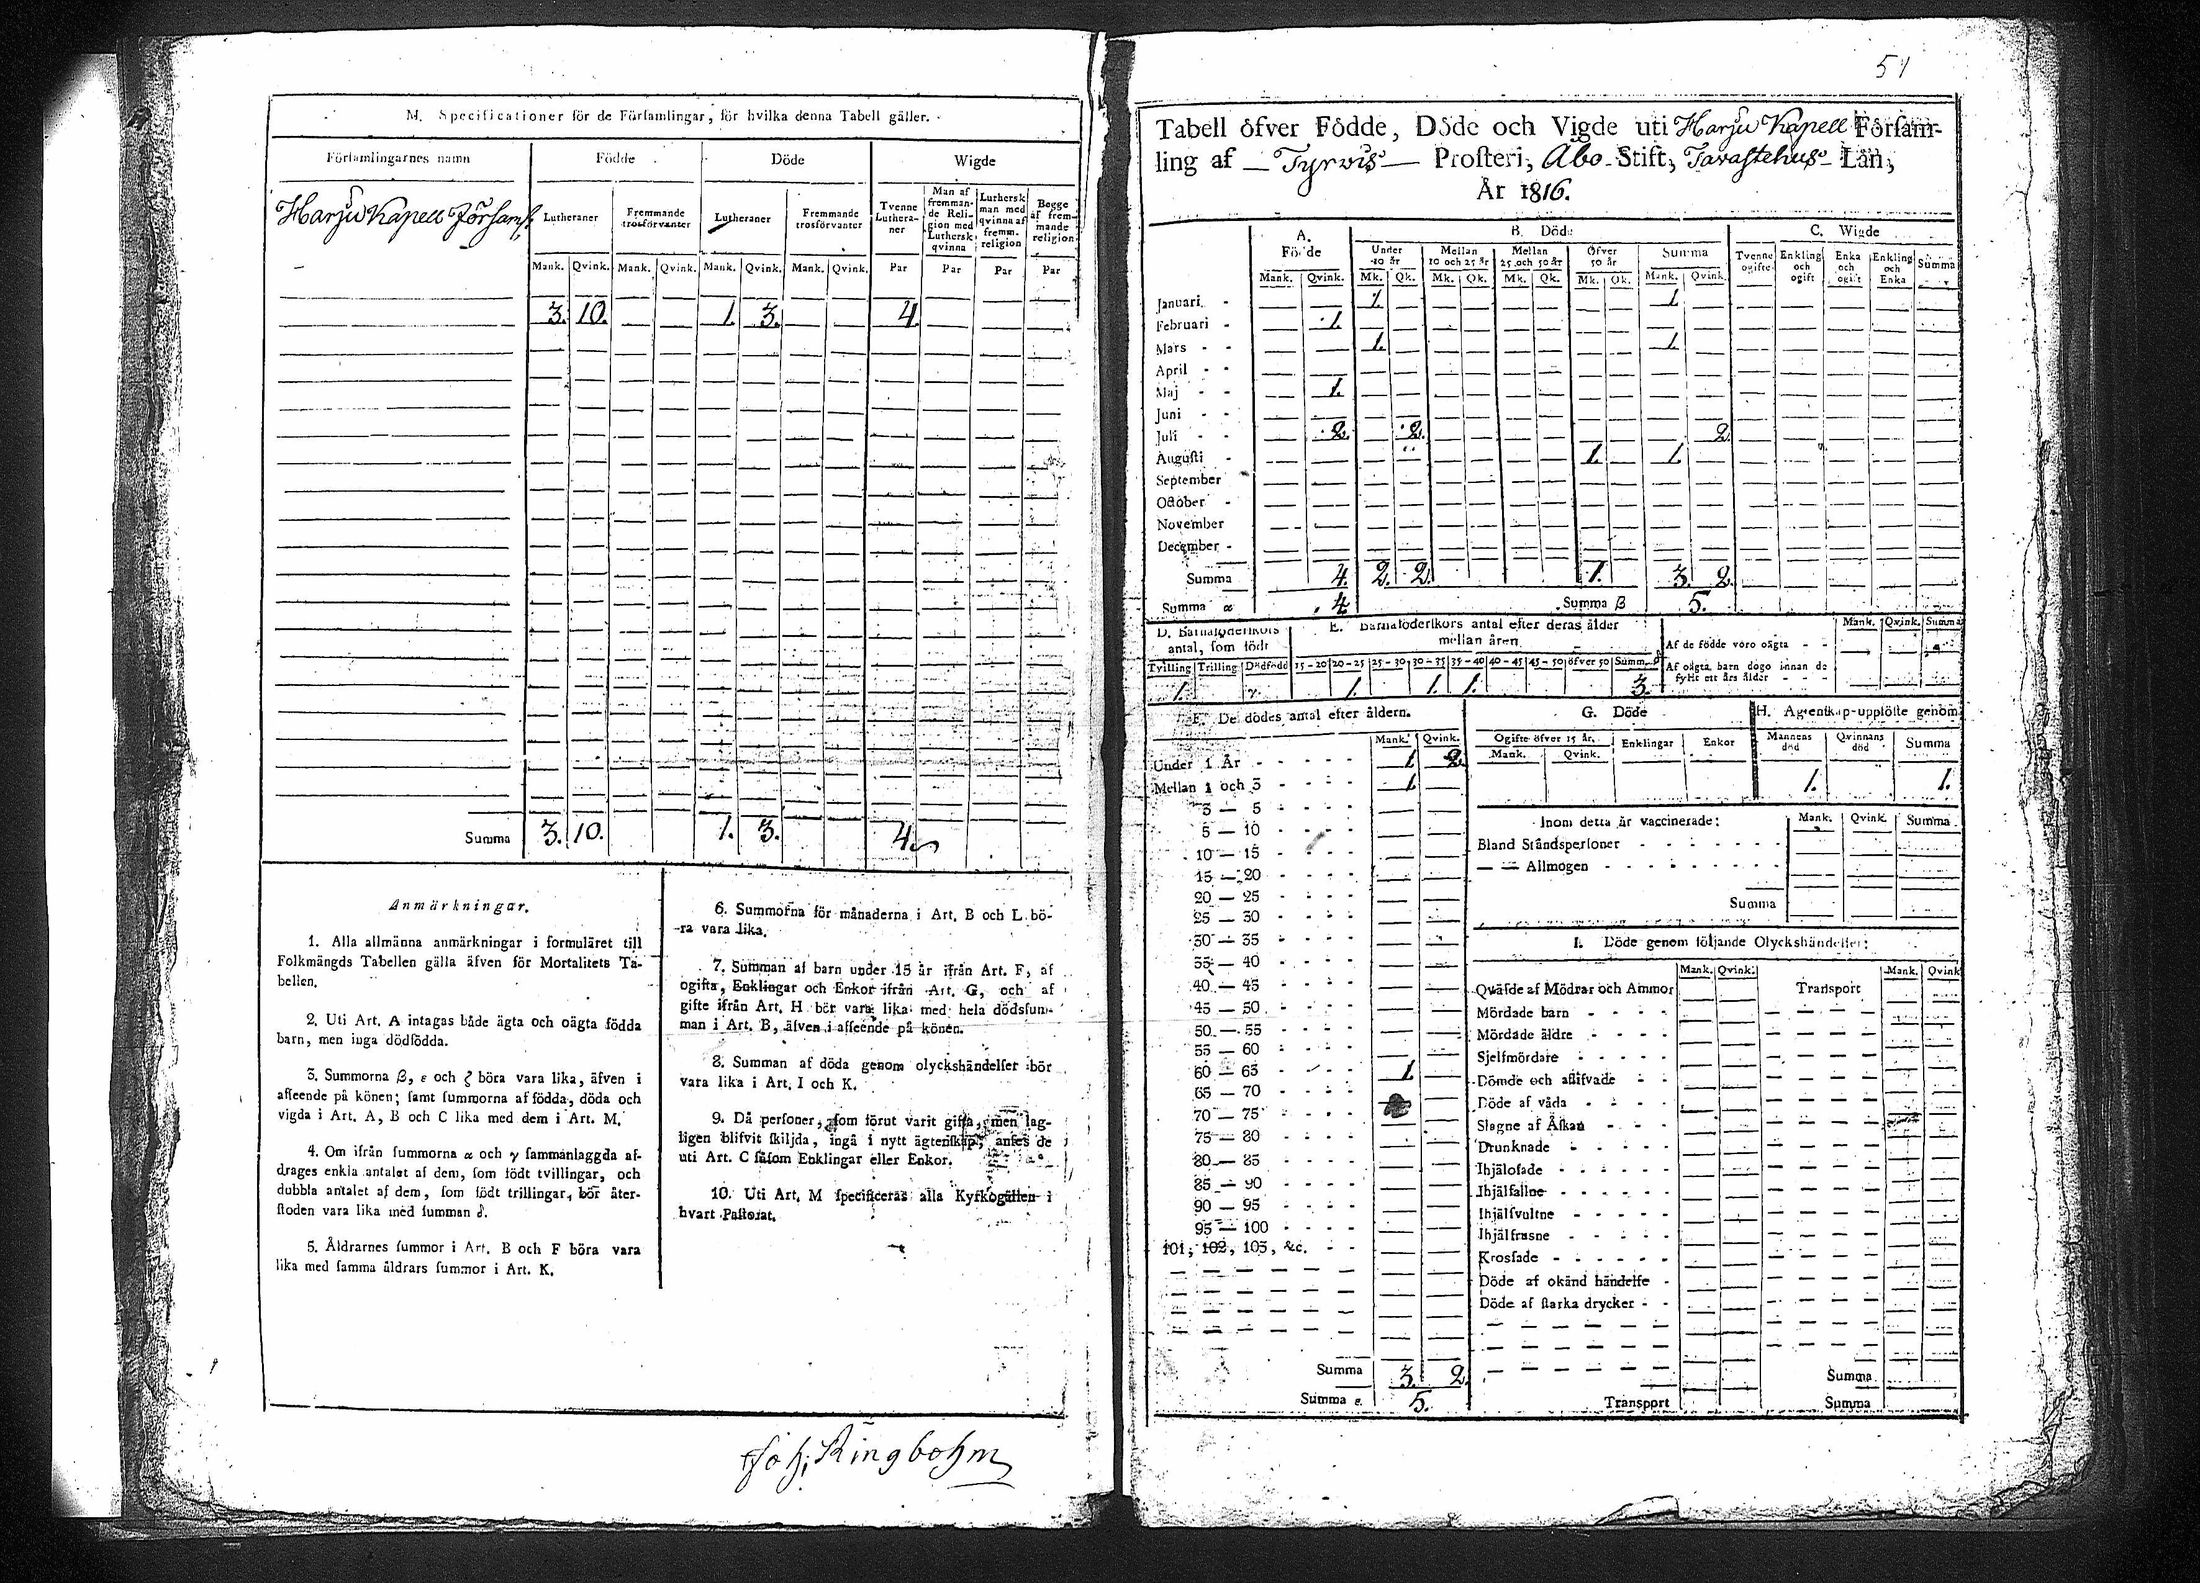 M. Specificationer för de Förſamlingar, för hvilka denna Tabell gäller.
Förſamlingarnes namn Födde Döde Wigde
Lutheraner Fremmande trosförvanter Lutheraner Fremmande trosförvanter Tvenne Lutheraner Man af fremmande Religion med Lutherſk qvinna Lutherſk man med qvinna af fremm. religion Begge af fremmande religion
Mank. Qvink. Mank. Qvink. Mank. Qvink. Mank. Qvink. Par Par Par Par
Harju Kapell Förſaml.
3. 10. 1. 3. 4.
Summa 3. 10. 1. 3. 4.
Anmärkningar.
1. Alla allmänna anmärkningar i formuläret till
Folkmängds Tabellen gälla äfven för Mortalitets Ta-
bellen.
2. Uti Art. A intagas både ägta och oägta födda
barn, men inga dödfödda.
3. Summorna β, ε och ζ böra vara lika, äfven i
afſeende på könen; ſamt ſummorna af födda, döda och
vigda i Art. A, B och C lika med dem i Art. M.
4. Om ifrån ſummorna α och γ ſammanlaggda af-
drages enkla antalet af dem, ſom födt tvillingar, och
dubbla antalet af dem, ſom födt trillingar, bör åter-
ſtoden vara lika med ſumman δ.
5. Åldrarnes ſummor i Art. B och F böra vara
lika med ſamma åldrars ſummor i Art. K.
6. Summorna för månaderna i Art. B och L bö-
ra vara lika.
7. Summan af barn under 15 år ifrån Art. F, af
ogifta, Enklingar och Enkor ifrån Art. G, och af
gifte ifrån Art. H bör vara lika med hela dödsſum-
man i Art. B, äfven i afſeende på könen.
8. Summan af döda genom olyckshändelſer bör
vara lika i Art. I och K.
9. Då perſoner, ſom förut varit gifta, men lag-
ligen blifvit ſkiljda, ingå i nytt ägtenſkap, anſes de
uti Art. C ſåſom Enklingar eller Enkor.
10. Uti Art. M ſpecificeras alla Kyrkogällen i
hvart Paſtorat.
Joh. Ringbohm
51
Tabell öfver Födde, Döde och Vigde uti Harju Kapell Förſam-
ling af Tyrvis Proſteri, Åbo Stift, Tavastehus Län,
År 1816.
A. Födde B. Döde C. Wigde
Under 10 år Mellan 10 och 25 år Mellan 25 och 50 år Öfver 50 år Summa Tvenne ogifte Enkling och ogift Enka och ogift Enkling och Enka Summa
Mank. Qvink. Mk. Qk. Mk. Qk. Mk. Qk. Mk. Qk. Mank. Qvink.
Januari 1. 1.
Februari 1.
Mars 1. 1.
April
Maj 1.
Juni
Juli 2. 2. 2.
Auguſti 1. 1.
September
October
November
December
Summa 4. 2. 2. 1. 3. 2.
Summa α 4. Summa β 5.
D. Barnaföderſkors antal, ſom födt
Tvilling Trilling Dödfödd
1.
E. Barnaföderſkors antal efter deras ålder
mellan åren
15-20 20-25 25-30 30-35 35-40 40-45 45-50 öfver 50 Summa
1. 1. 1. 3.
Mank. Qvink. Summa
Af de födde voro oägta
Af oägta barn dogo innan de
fyllt ett års ålder
F. De dödes antal efter åldern.
Mank. Qvink.
Under 1 År 1. 2.
Mellan 1 och 3 1.
3 — 5
5 — 10
10 — 15
15 — 20
20 — 25
25 — 30
30 — 35
35 — 40
40 — 45
45 — 50
50 — 55
55 — 60
60 — 65 1.
65 — 70
70 — 75
75 — 80
80 — 85
85 — 90
90 — 95
95 — 100
101, 102, 103, &c.
Summa 3. 2.
Summa ε. 5.
G. Döde
Ogifte öfver 15 år. Enklingar Enkor
Mank. Qvink.
H. Ägtenſkap upplöſte genom
Mannens död Qvinnans död Summa
1. 1.
Inom detta år vaccinerade: Mank. Qvink. Summa
Bland Ståndsperſoner
— — Allmogen
Summa
I. Döde genom följande Olyckshändelſer:
Mank. Qvink. Mank. Qvink
Qväfde af Mödrar och Ammor Transport
Mördade barn
Mördade äldre
Sjelfmördare
Dömde och aflifvade
Döde af våda
Slagne af Åſkan
Drunknade
Ihjäloſade
Ihjälfallne
Ihjälſvultne
Ihjälfruſne
Kroſſade
Döde af okänd händelſe
Döde af ſtarka drycker
Summa
Transport Summa